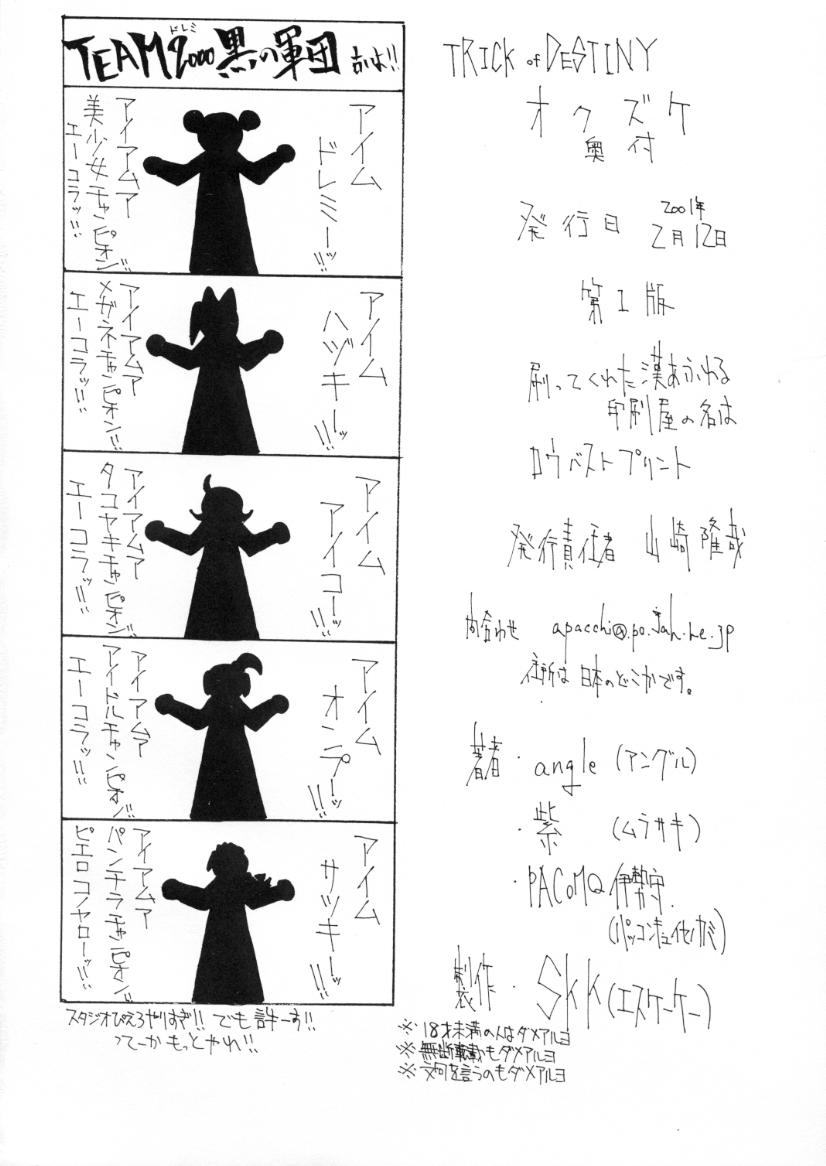 TEAM2000黒の軍団
ドレミ
アイム
ドレミーッ!!
アイアムア
美少女チャンピオン!!
エーコラッ!!!
アイム
ハヅキーッ!!!
アイアムア
メガネチャンピオン!!
エーコラッ!!!
アイム
アイコーッ!!!
アイアムア
タコヤキチャンピオン!!
エーコラッ!!!
アイム
オンプーッ!!!
アイアムア
アイドルチャンピオン!!
エーコラッ!!!
アイム
サツキーッ!!!
アイアムア
パンチラチャンピオン!!
ピエロコノヤローッ!!!
スタジオぴえろやりすぎ!! でも許ーす!!
つてーか もっとやれ!!
TRICK of DESTINY
オクズケ
奥付
発行日 2001年
2月12日
第1版
刷ってくれた漢あふれる
印刷屋の名は
ロウバストプリント
発行責任者 山崎隆哉
問合わせ apacchi@.po.jah.ne.jp
住所は日本のどこかです。
著者・angle (アングル)
・紫 (ムラサキ)
・PACoMQ伊勢守.
(パッコンキュイセノカミ)
製作・SKK(エスケーケー)
※18才未満の人はダメアルヨ
※無断転載もダメアルヨ
※文句を言うのもダメアルヨ